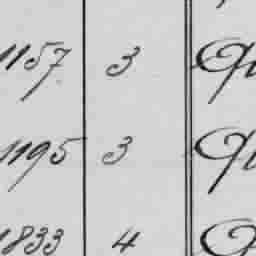 1157 3
1195 3
1833 4